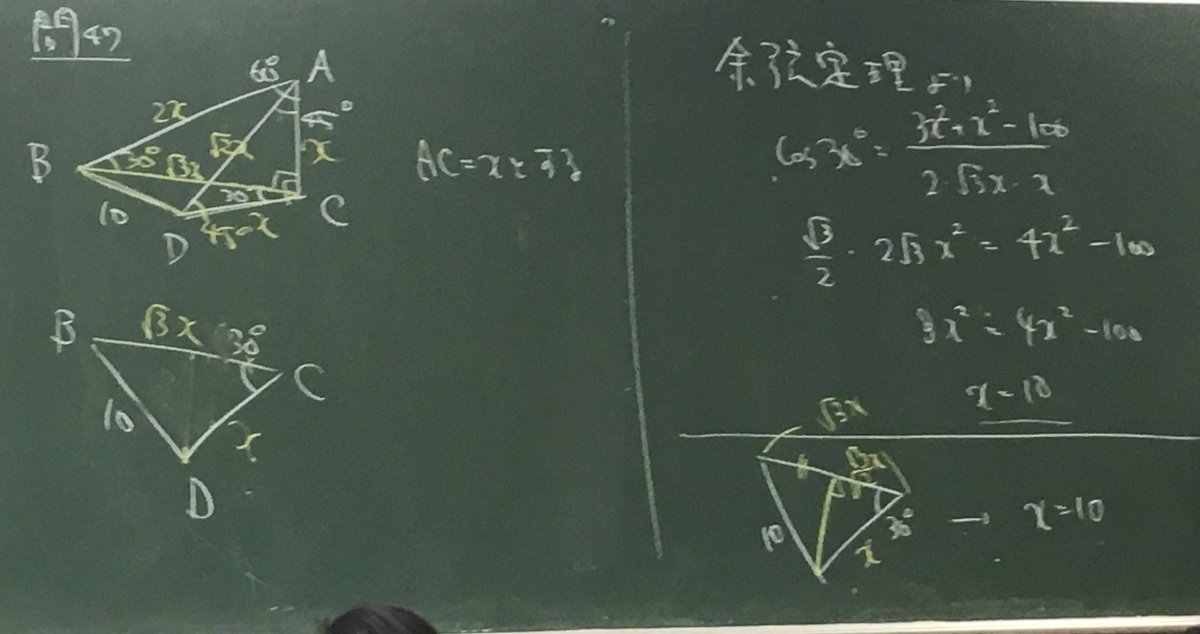 問47
60°
A
2x
45°
B
30°
√3x
√2x
x
30°
C
10
D
45°
x
AC=xとする
B
√3x
30°
C
10
x
D
余弦定理より
cos30°= 3x²+x²-100 / 2·√3x·x
√3/2 · 2√3x² = 4x²-100
3x² = 4x²-100
x=10
√3x
√3x/2
10
30°
x
→ x=10